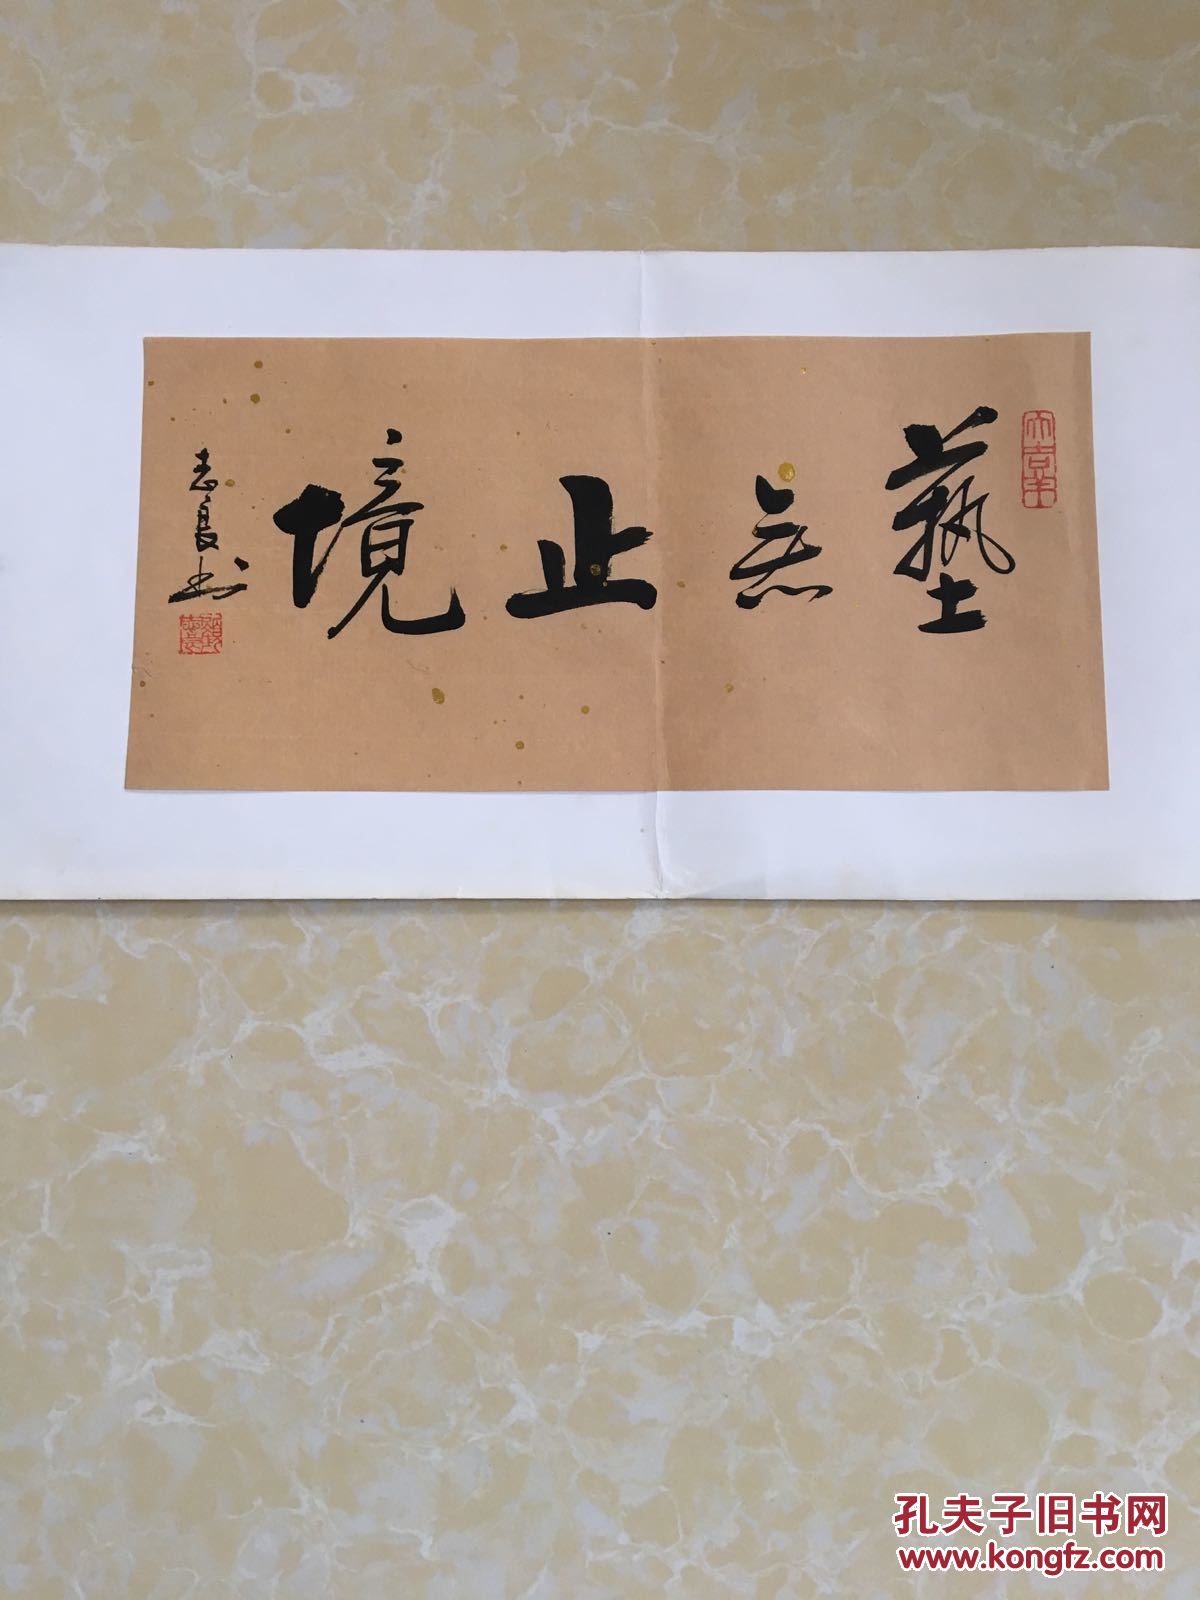 藝無止境
志良书
孔夫子旧书网
www.kongfz.com